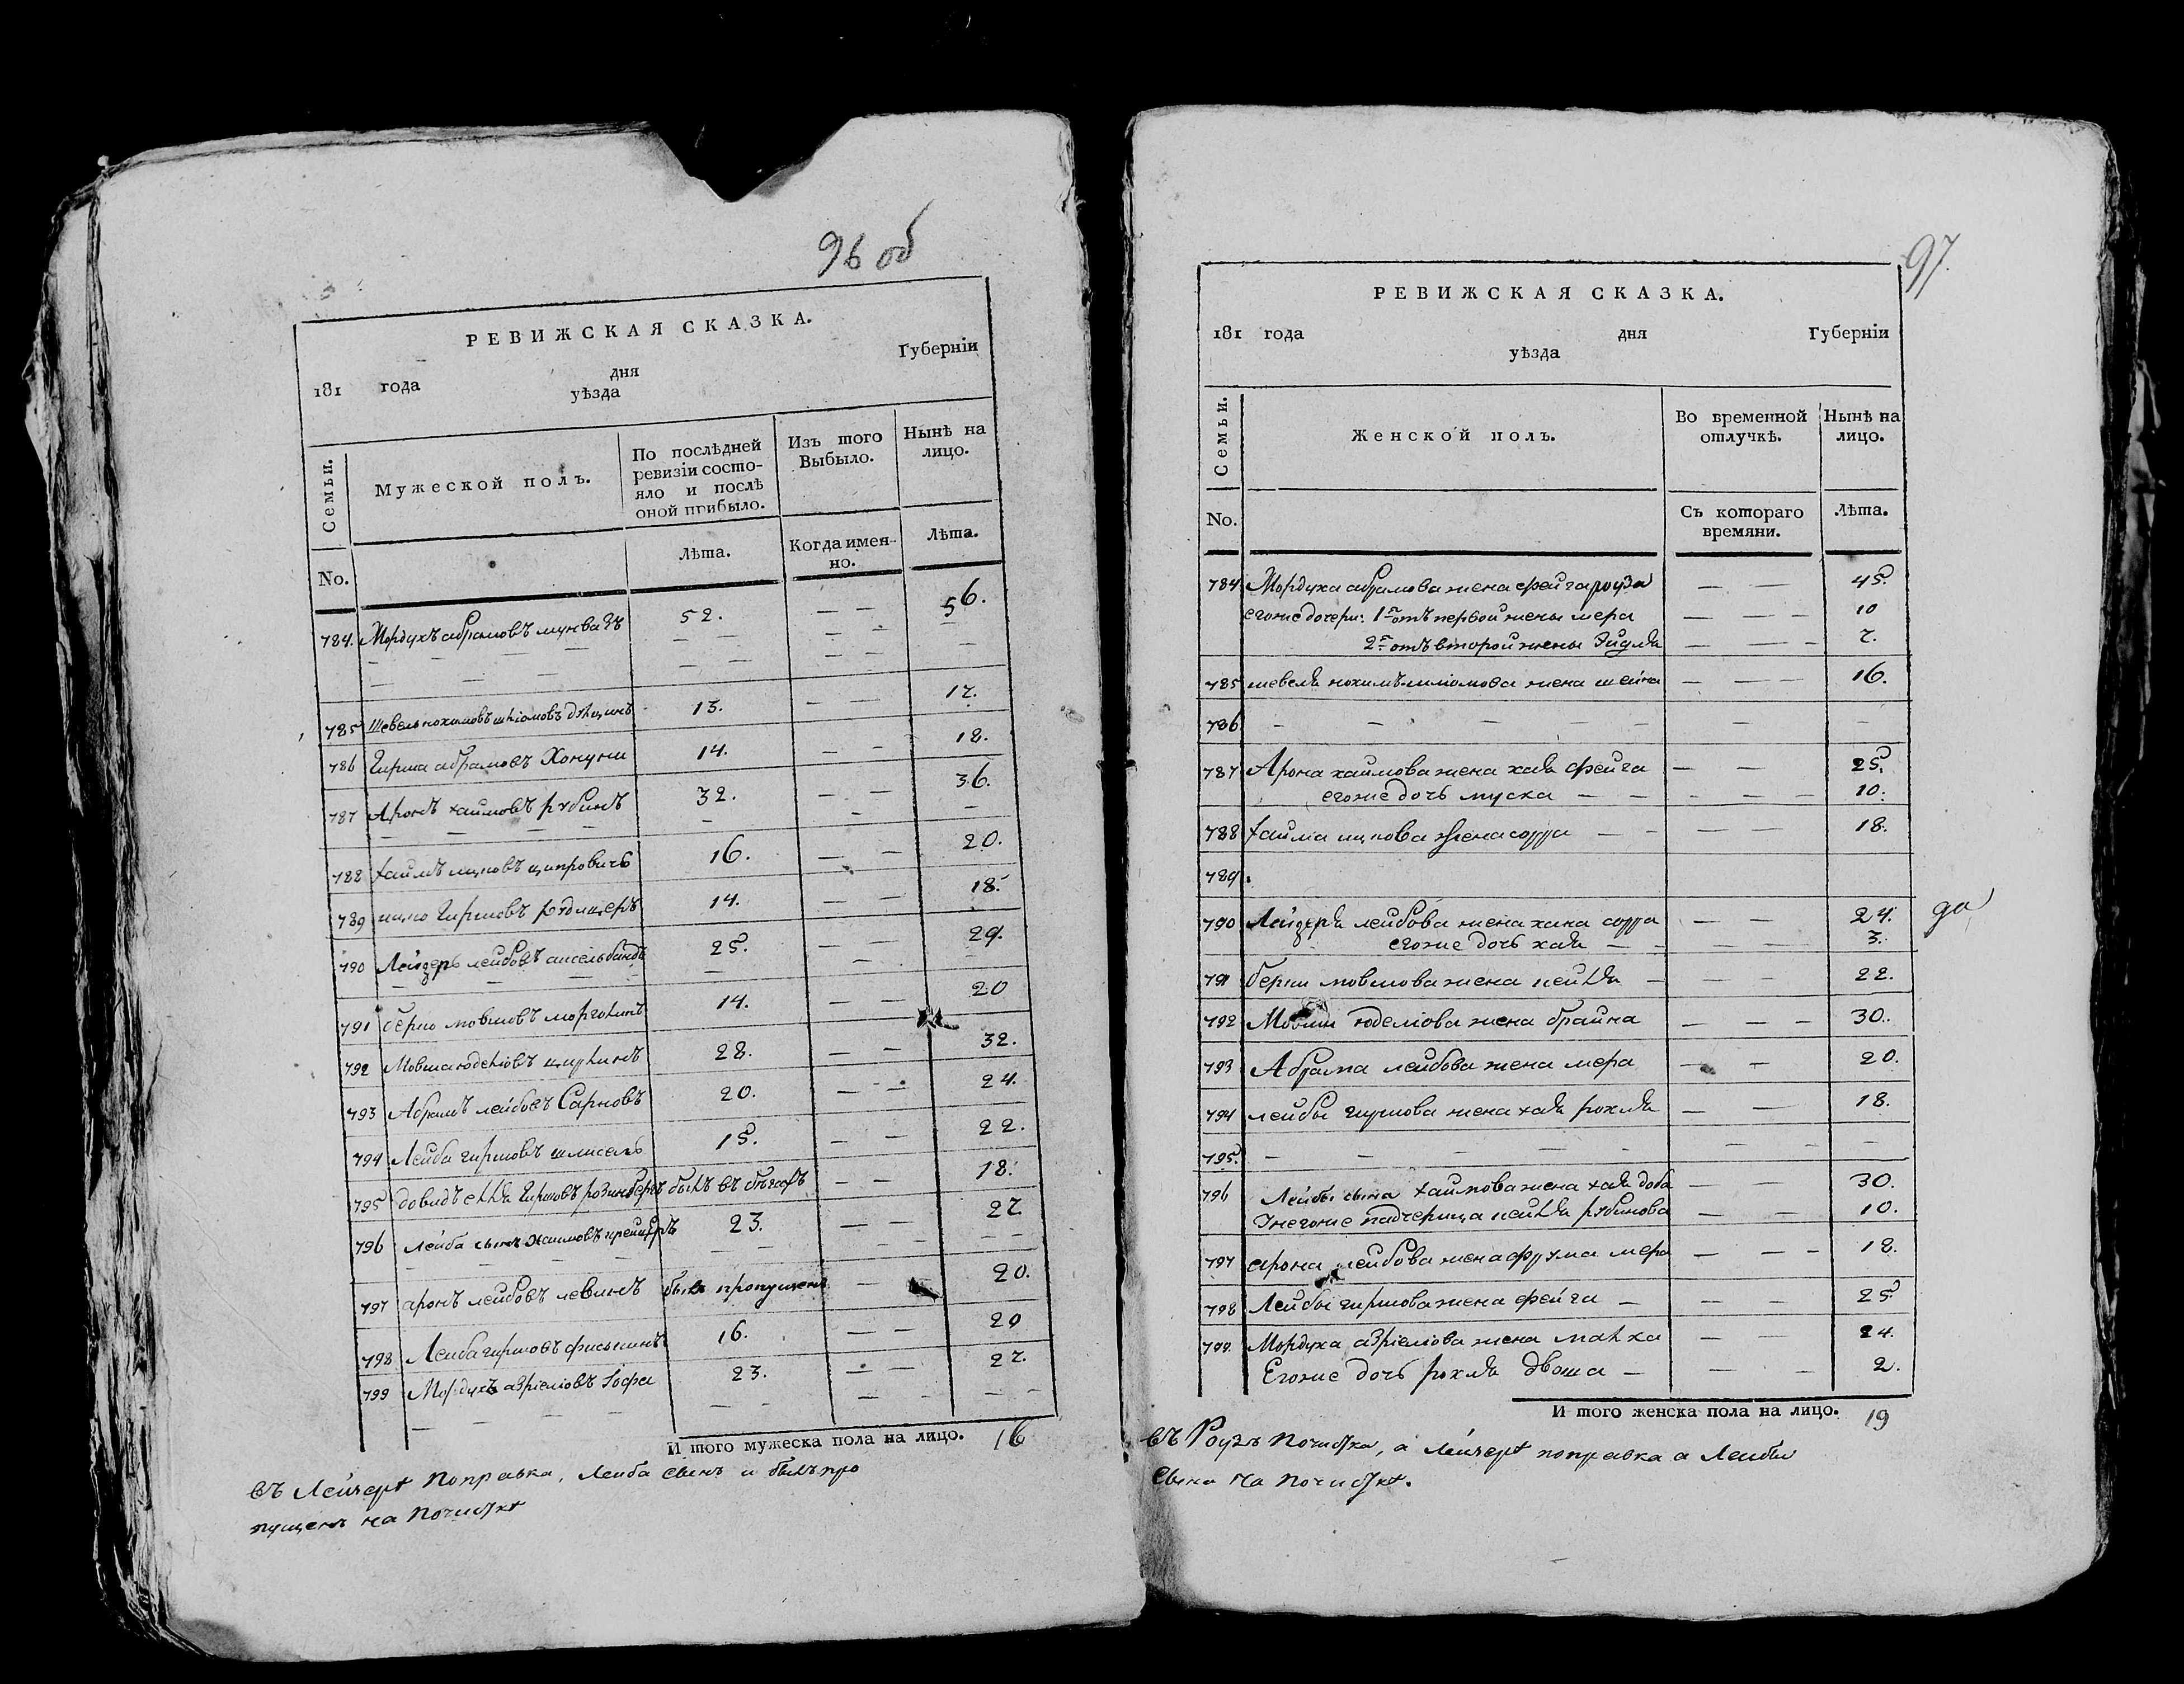 96 об
РЕВИЖСКАЯ СКАЗКА.
181 года дня Губерніи
уѣзда
Семьи. Мужеской полъ. По послѣдней ревизіи состояло и послѣ оной прибыло. Изъ того Выбыло. Нынѣ на лицо.
No. Лѣта. Когда именно. Лѣта.
784. Мордухъ абрамовъ 52. — — 56.
785 Шевель нохимовъ 13. — — 17.
786 Гирша абрамовъ Хонуни 14. — — 18.
787 Аронъ хаимовъ рубинъ 32. — — 36.
788 хаимъ ицковъ ципровичъ 16. — — 20.
789 ицко Гиршовъ 14. — — 18.
790 Лейзеръ лейбовъ 25. — — 29.
791 берко мовшовъ 14. — — 20
792 Мовша юделіовъ 28. — — 32.
793 Абрамъ лейбовъ Сарновъ 20. — — 24.
794 Лейба гиршовъ 15. — — 22.
795 довидъ Гиршовъ былъ въ — — 18.
796 Лейба сынъ хаимовъ 23. — — 27
797 аронъ лейбовъ левинъ былъ пропущенъ — — 20.
798 Лейба гиршовъ 16. — — 20
799 Мордухъ азріеліовъ 23. — — 27.
И того мужеска пола на лицо. 16
въ поправка, Лейба сынъ и былъ про
пущенъ на почисткѣ
97.
РЕВИЖСКАЯ СКАЗКА.
181 года дня Губерніи
уѣзда
Семьи. Женской полъ. Во временной отлучкѣ. Нынѣ на лицо.
No. Съ котораго времяни. Лѣта.
784 Мордуха абрамова жена фейга роуза — — 45.
егоже дочери: 1я отъ первой жены мера — — 10
2я отъ второй жены — — 7.
785 шевеля жена шейна — — 16.
786 — — — — — — —
787 Арона хаимова жена хая фейга — — 25.
егоже дочь муска — — — — 10.
788 хаима ицкова жена сорра — — — 18.
789.
790 Лейзера лейбова жена хана сорра — — 24.
егоже дочь хая — — — 3.
791 берки мовшова жена — — — 22.
792 Мовши юделіова жена брайна — — — 30.
793 Абрама лейбова жена мера — — 20.
794 лейбы гиршова жена хая рохля — — 18.
795. — — — — — — —
796 Лейбы сына хаимова жена хая доба — — 30.
падчерица рубинова — — 10.
797 арона лейбова жена фрума мера — — — 18.
798 Лейбы гиршова жена фейга — — — 25
799. Мордуха азріеліова жена малка — — 24.
Егоже дочь рохля двоша — — — 2.
И того женска пола на лицо. 19
въ Роузѣ почистка, а поправка а Лейбы
сына на почисткѣ.